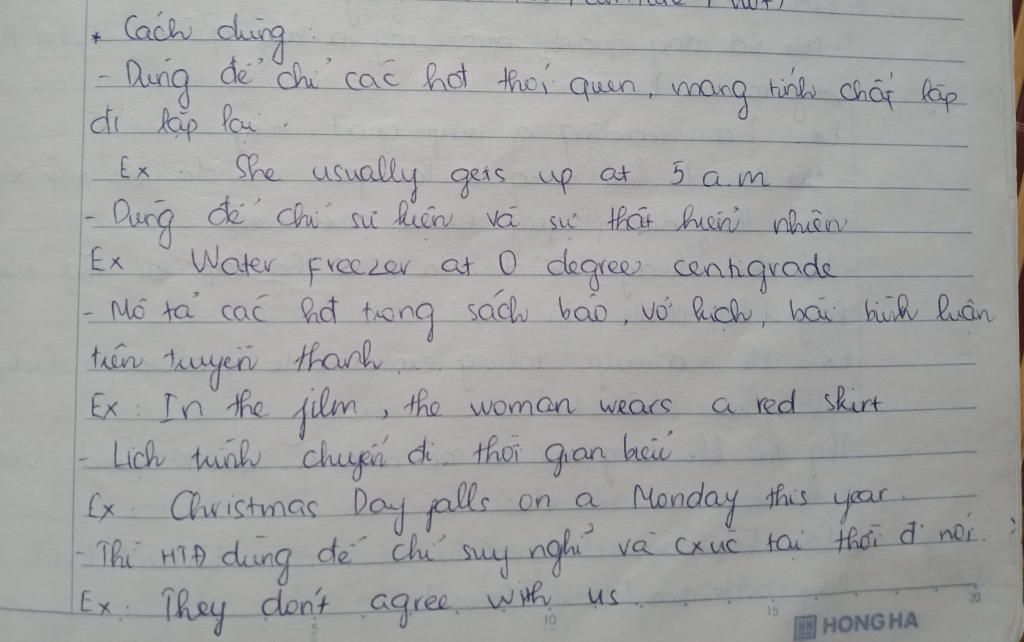 * Cách dùng:
- Dùng để chỉ các hđ thói quen, mang tính chất lặp
đi lặp lại.
Ex She usually gets up at 5 a.m
- Dùng để chỉ sự kiện và sự thật hiển nhiên
Ex Water freezer at 0 degree centigrade
- Mô tả các hđ trong sách báo, vở kịch, bài bình luận
trên truyền thanh.
Ex: In the film, the woman wears a red skirt
- Lịch trình chuyến đi, thời gian biểu.
Ex: Christmas Day falls on a Monday this year.
- Thì HTĐ dùng để chỉ suy nghĩ và cxúc tại thời đ nói.
Ex: They don't agree with us
5 10 15 20
HONG HA